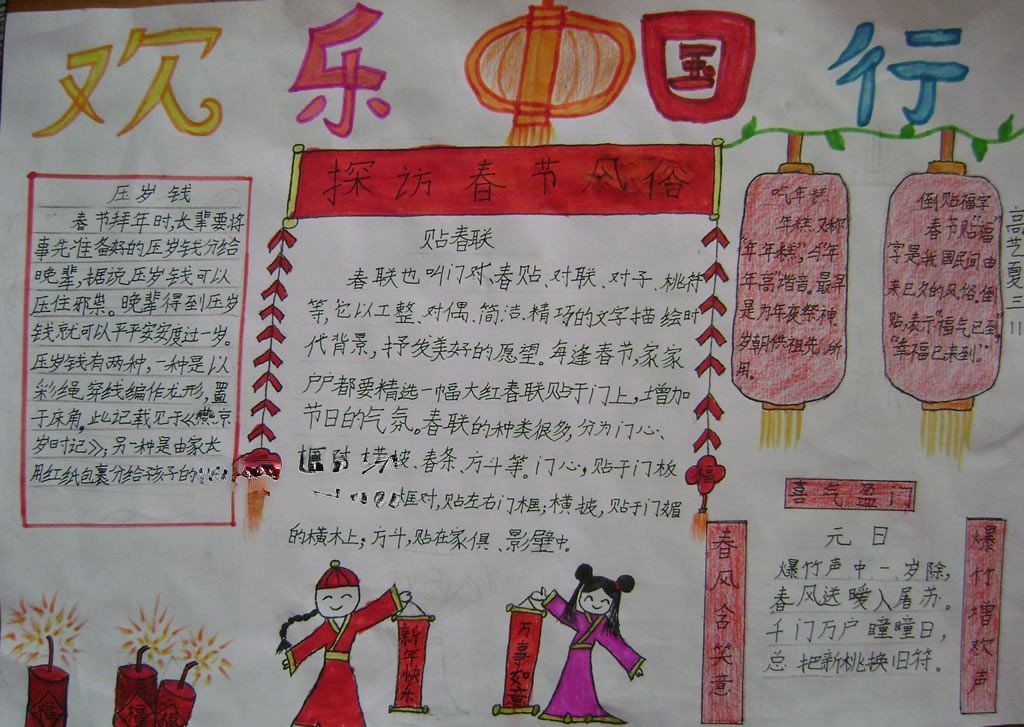 欢乐中国行
探访春节风俗
压岁钱
春节拜年时,长辈要将
事先准备好的压岁钱分给
晚辈,据说压岁钱可以
压住邪祟。晚辈得到压岁
钱就可以平平安安度过一岁。
压岁钱有两种,一种是以
彩绳穿线编作龙形,置
于床角。此记载见于《燕京
岁时记》;另一种是由家长
用红纸包裹分给孩子的
贴春联
春联也叫门对、春贴、对联、对子、桃符
等,它以工整、对偶、简洁、精巧的文字描绘时
代背景,抒发美好的愿望。每逢春节,家家
户户都要精选一幅大红春联贴于门上,增加
节日的气氛。春联的种类很多,分为门心、
框对、横披、春条、方斗等。门心,贴于门板
框对,贴左右门框;横披,贴于门媚
的横木上;方斗,贴在家俱、影壁中。
福
吃年糕
年糕又称
"年年糕",与"年
年高"谐音,最早
是为年夜祭神、
岁朝供祖先所
用。
倒贴福字
春节贴"福"
字是我国民间由
来已久的风俗。倒
贴,表示"福气已到"
"幸福已来到。"
高艺夏三11
喜气盈门
春风含笑意
爆竹增欢声
元日
爆竹声中一岁除,
春风送暖入屠苏。
千门万户瞳瞳日,
总把新桃换旧符。
新年快乐
万事如意
福
福
福